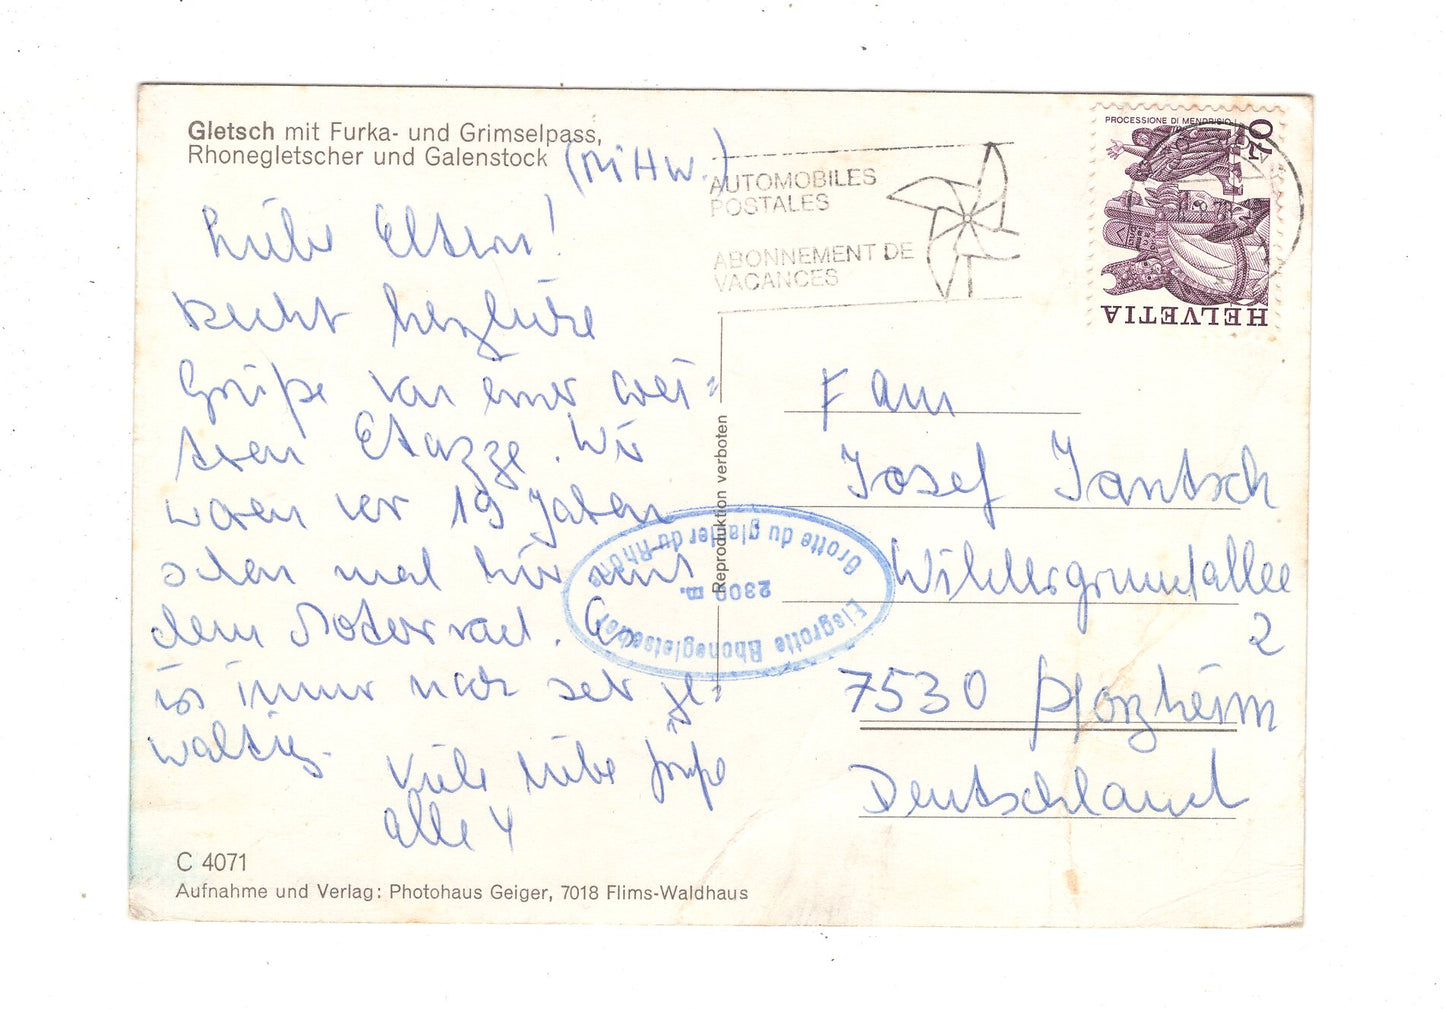 Gletsch mit Furka- und Grimselpass,
Rhonegletscher und Galenstock
Liebe Eltern!
Recht herzliche
Grüße von einer wei=
teren Etazze. Wir
waren vor 19 Jahren
schon mal hier mit
dem Motorrad. Es
ist immer noch sehr ge=
waltig.
Viele liebe Grüße
alle 4
C 4071
Aufnahme und Verlag: Photohaus Geiger, 7018 Flims-Waldhaus
Reproduktion verboten
AUTOMOBILES
POSTALES
ABONNEMENT DE
VACANCES
PROCESSIONE DI MENDRISIO
70
HELVETIA
Grotte du glacier du Rhône
2300 m.
Eisgrotte Rhonegletscher
Fam
Josef Jantsch
Wildersgrundallee
2
7530 Pforzheim
Deutschland